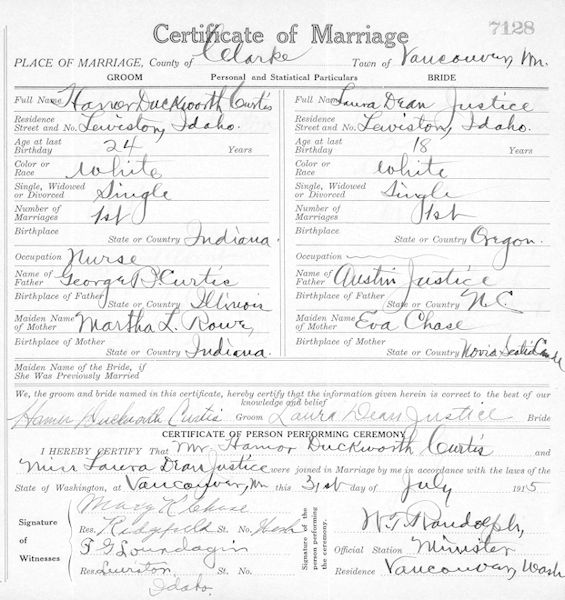 7128
Certificate of Marriage
PLACE OF MARRIAGE, County of Clarke Town of Vancouver, Wn.
GROOM Personal and Statistical Particulars BRIDE
Full Name Hamor Duckworth Curtis Full Name Laura Dean Justice
Residence Street and No. Lewiston, Idaho. Residence Street and No. Lewiston, Idaho.
Age at last Birthday 24 Years Age at last Birthday 18 Years
Color or Race White Color or Race White
Single, Widowed or Divorced Single Single, Widowed or Divorced Single
Number of Marriages 1st Number of Marriages 1st
Birthplace State or Country Indiana Birthplace State or Country Oregon.
Occupation Nurse Occupation
Name of Father George P. Curtis Name of Father Austin Justice
Birthplace of Father State or Country Illinois Birthplace of Father State or Country N.C.
Maiden Name of Mother Martha L. Rowe, Maiden Name of Mother Eva Chase
Birthplace of Mother State or Country Indiana. Birthplace of Mother State or Country Nova Scotia
Maiden Name of the Bride, if She Was Previously Married
We, the groom and bride named in this certificate, hereby certify that the information given herein is correct to the best of our
knowledge and belief
Hamor Duckworth Curtis Groom Laura Dean Justice Bride
CERTIFICATE OF PERSON PERFORMING CEREMONY
I HEREBY CERTIFY That Mr. Hamor Duckworth Curtis and
Miss Laura Dean Justice were joined in Marriage by me in accordance with the laws of the
State of Washington, at Vancouver, Wn this 31st day of July 1915
Signature of Witnesses
Mary K Chase
Res. Ridgefield St. No. Wash
F G Lourdagin
Res. Lewiston St. No.
Idaho.
Signature of person performing the ceremony.
W. T. Randolph,
Official Station Minister
Residence Vancouver, Wash